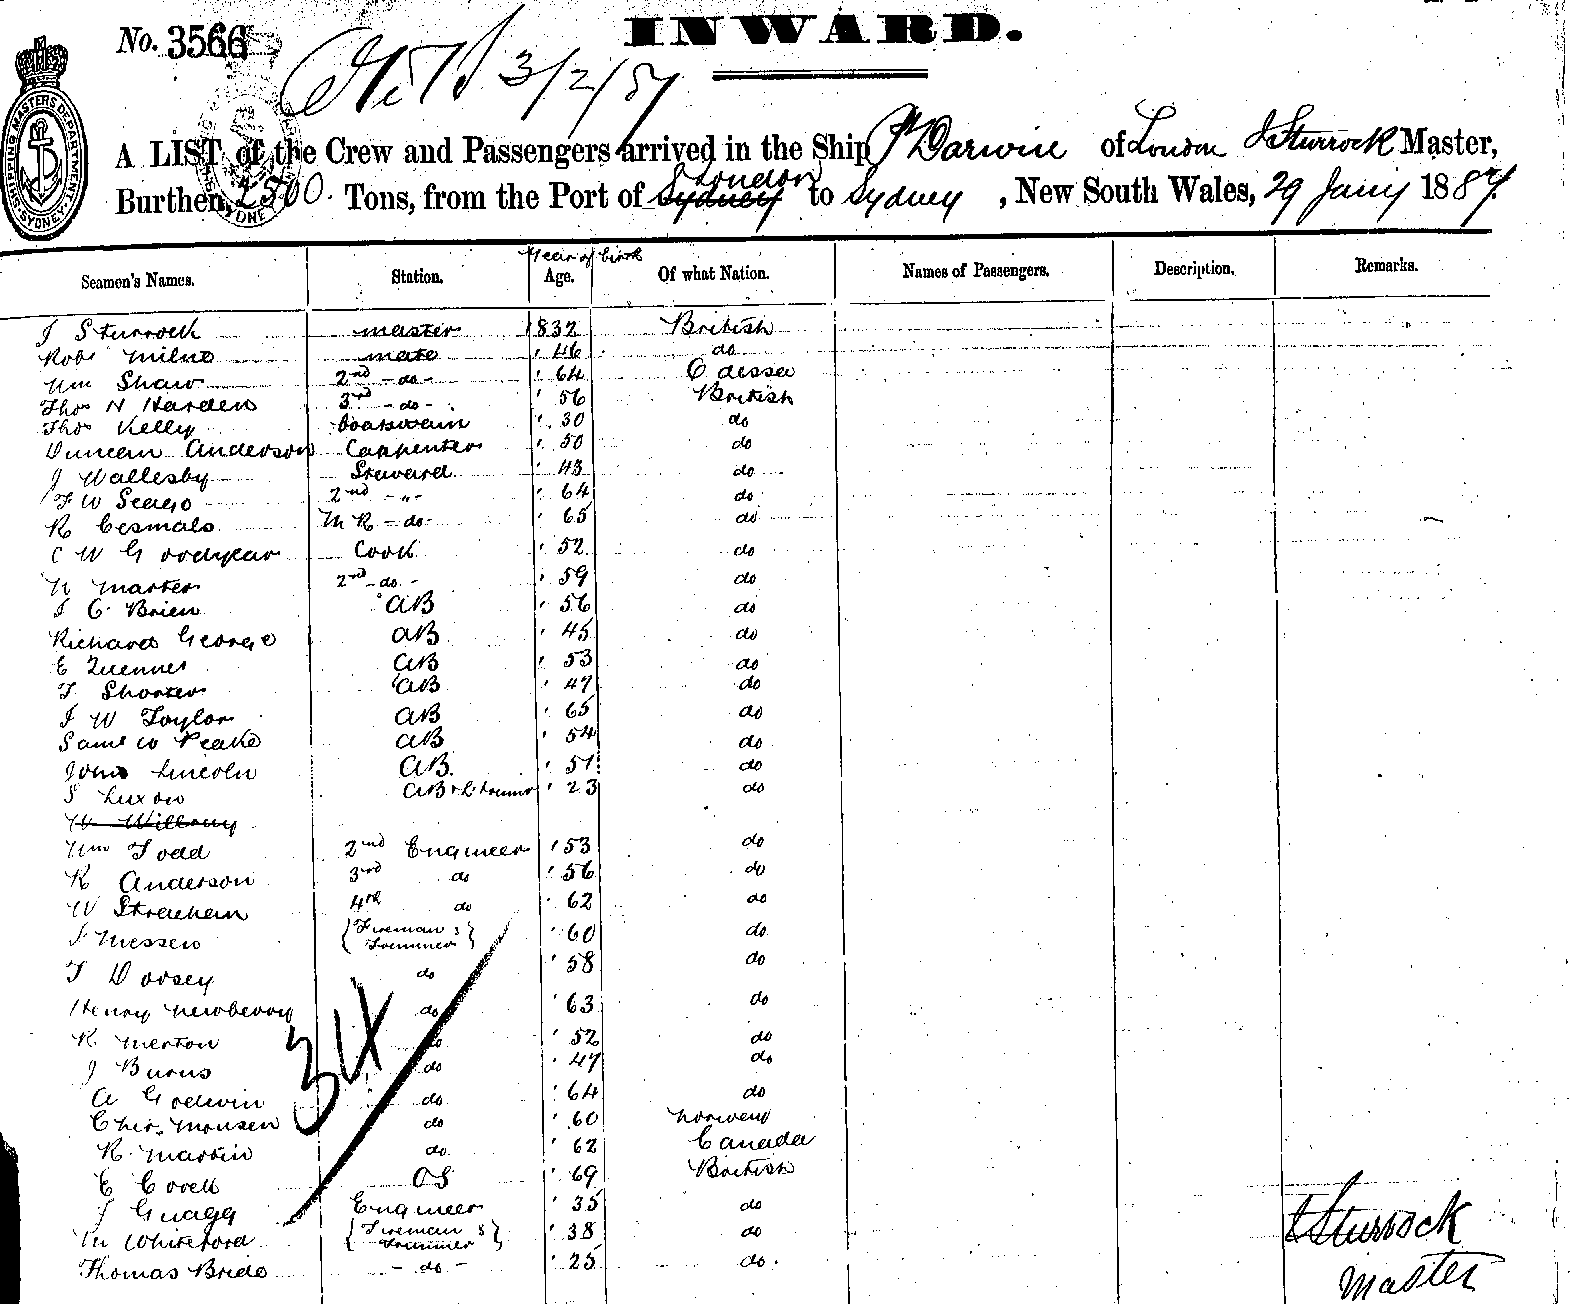 No. 3566
INWARD.
3/2/87
SHIPPING MASTERS DEPARTMENT
SYDNEY
A LIST of the Crew and Passengers arrived in the Ship Pt Darwin of London J Sturrock Master,
Burthen, 2500 Tons, from the Port of Sydney London to Sydney, New South Wales, 29 Jany 1887.
Seamen's Names. Station. Year of birth Age. Of what Nation. Names of Passengers. Description. Remarks.
J Sturrock master 1832 British
Robt Milne mate ' 46 do
Wm Shaw 2nd - do - ' 64 Odessa
Thos N Harden 3rd - do - ' 56 British
Thos Kelly boatswain ' 30 do
Duncan Anderson Carpenter ' 50 do
J Wallesby Steward ' 43 do
F W Seago 2nd - " - ' 64 do
R M R - do - ' 65 do
C W Goodyear Cook ' 52 do
2nd - do - ' 59 do
J O Brien AB ' 56 do
Richard George AB ' 45 do
E AB ' 53 do
T Shorter AB ' 47 do
J W Taylor AB ' 65 do
Saml W Peake AB ' 54 do
John Lincoln AB. ' 51 do
S Luxon AB ' 23 do
W
Wm Todd 2nd Engineer ' 53 do
R Anderson 3rd do ' 56 do
W Strachan 4th do ' 62 do
J Messen {Fireman & Trimmer} ' 60 do
T Dorsey do ' 58 do
Henry Newberry do ' 63 do
R Merton do ' 52 do
J Burns do ' 47 do
A Godwin do ' 64 do
Chir. Monsen do ' 60 Norway
R. Martin do. ' 62 Canada
E Covell OS ' 69 British
J Engineer ' 35 do
M Whiteford {Fireman & Trimmer} ' 38 do
Thomas Bride - do - ' 25 do.
34
J Sturrock
Master